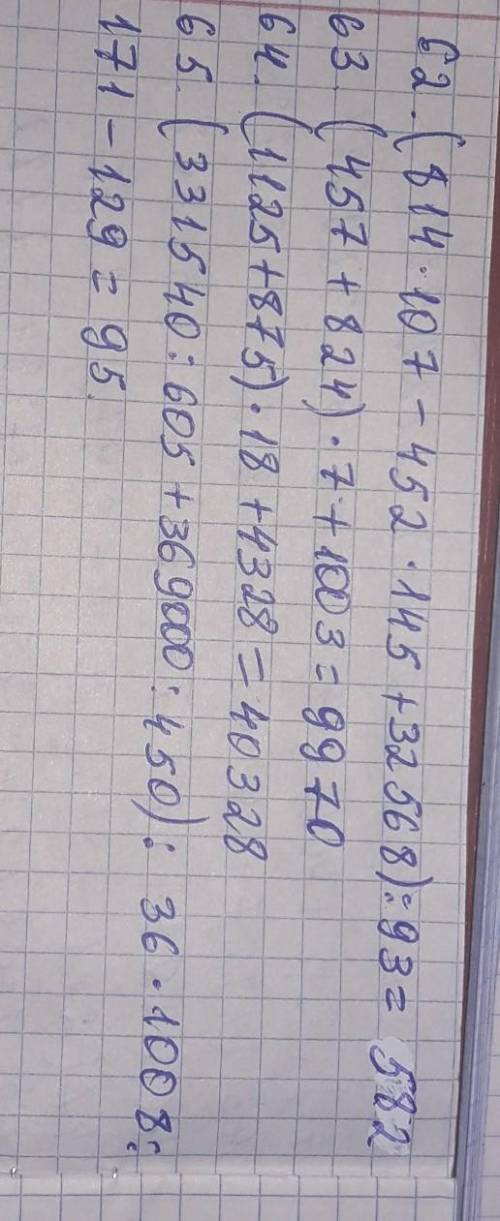 62. (814 · 107 - 452 · 145 + 32568) : 93 = 582
63. (457 + 824) · 7 + 1003 = 9970
64. (1125 + 875) · 18 + 4328 = 40328
65. (331540 : 605 + 369000 : 450) : 36 · 1008 :
171 - 129 = 95